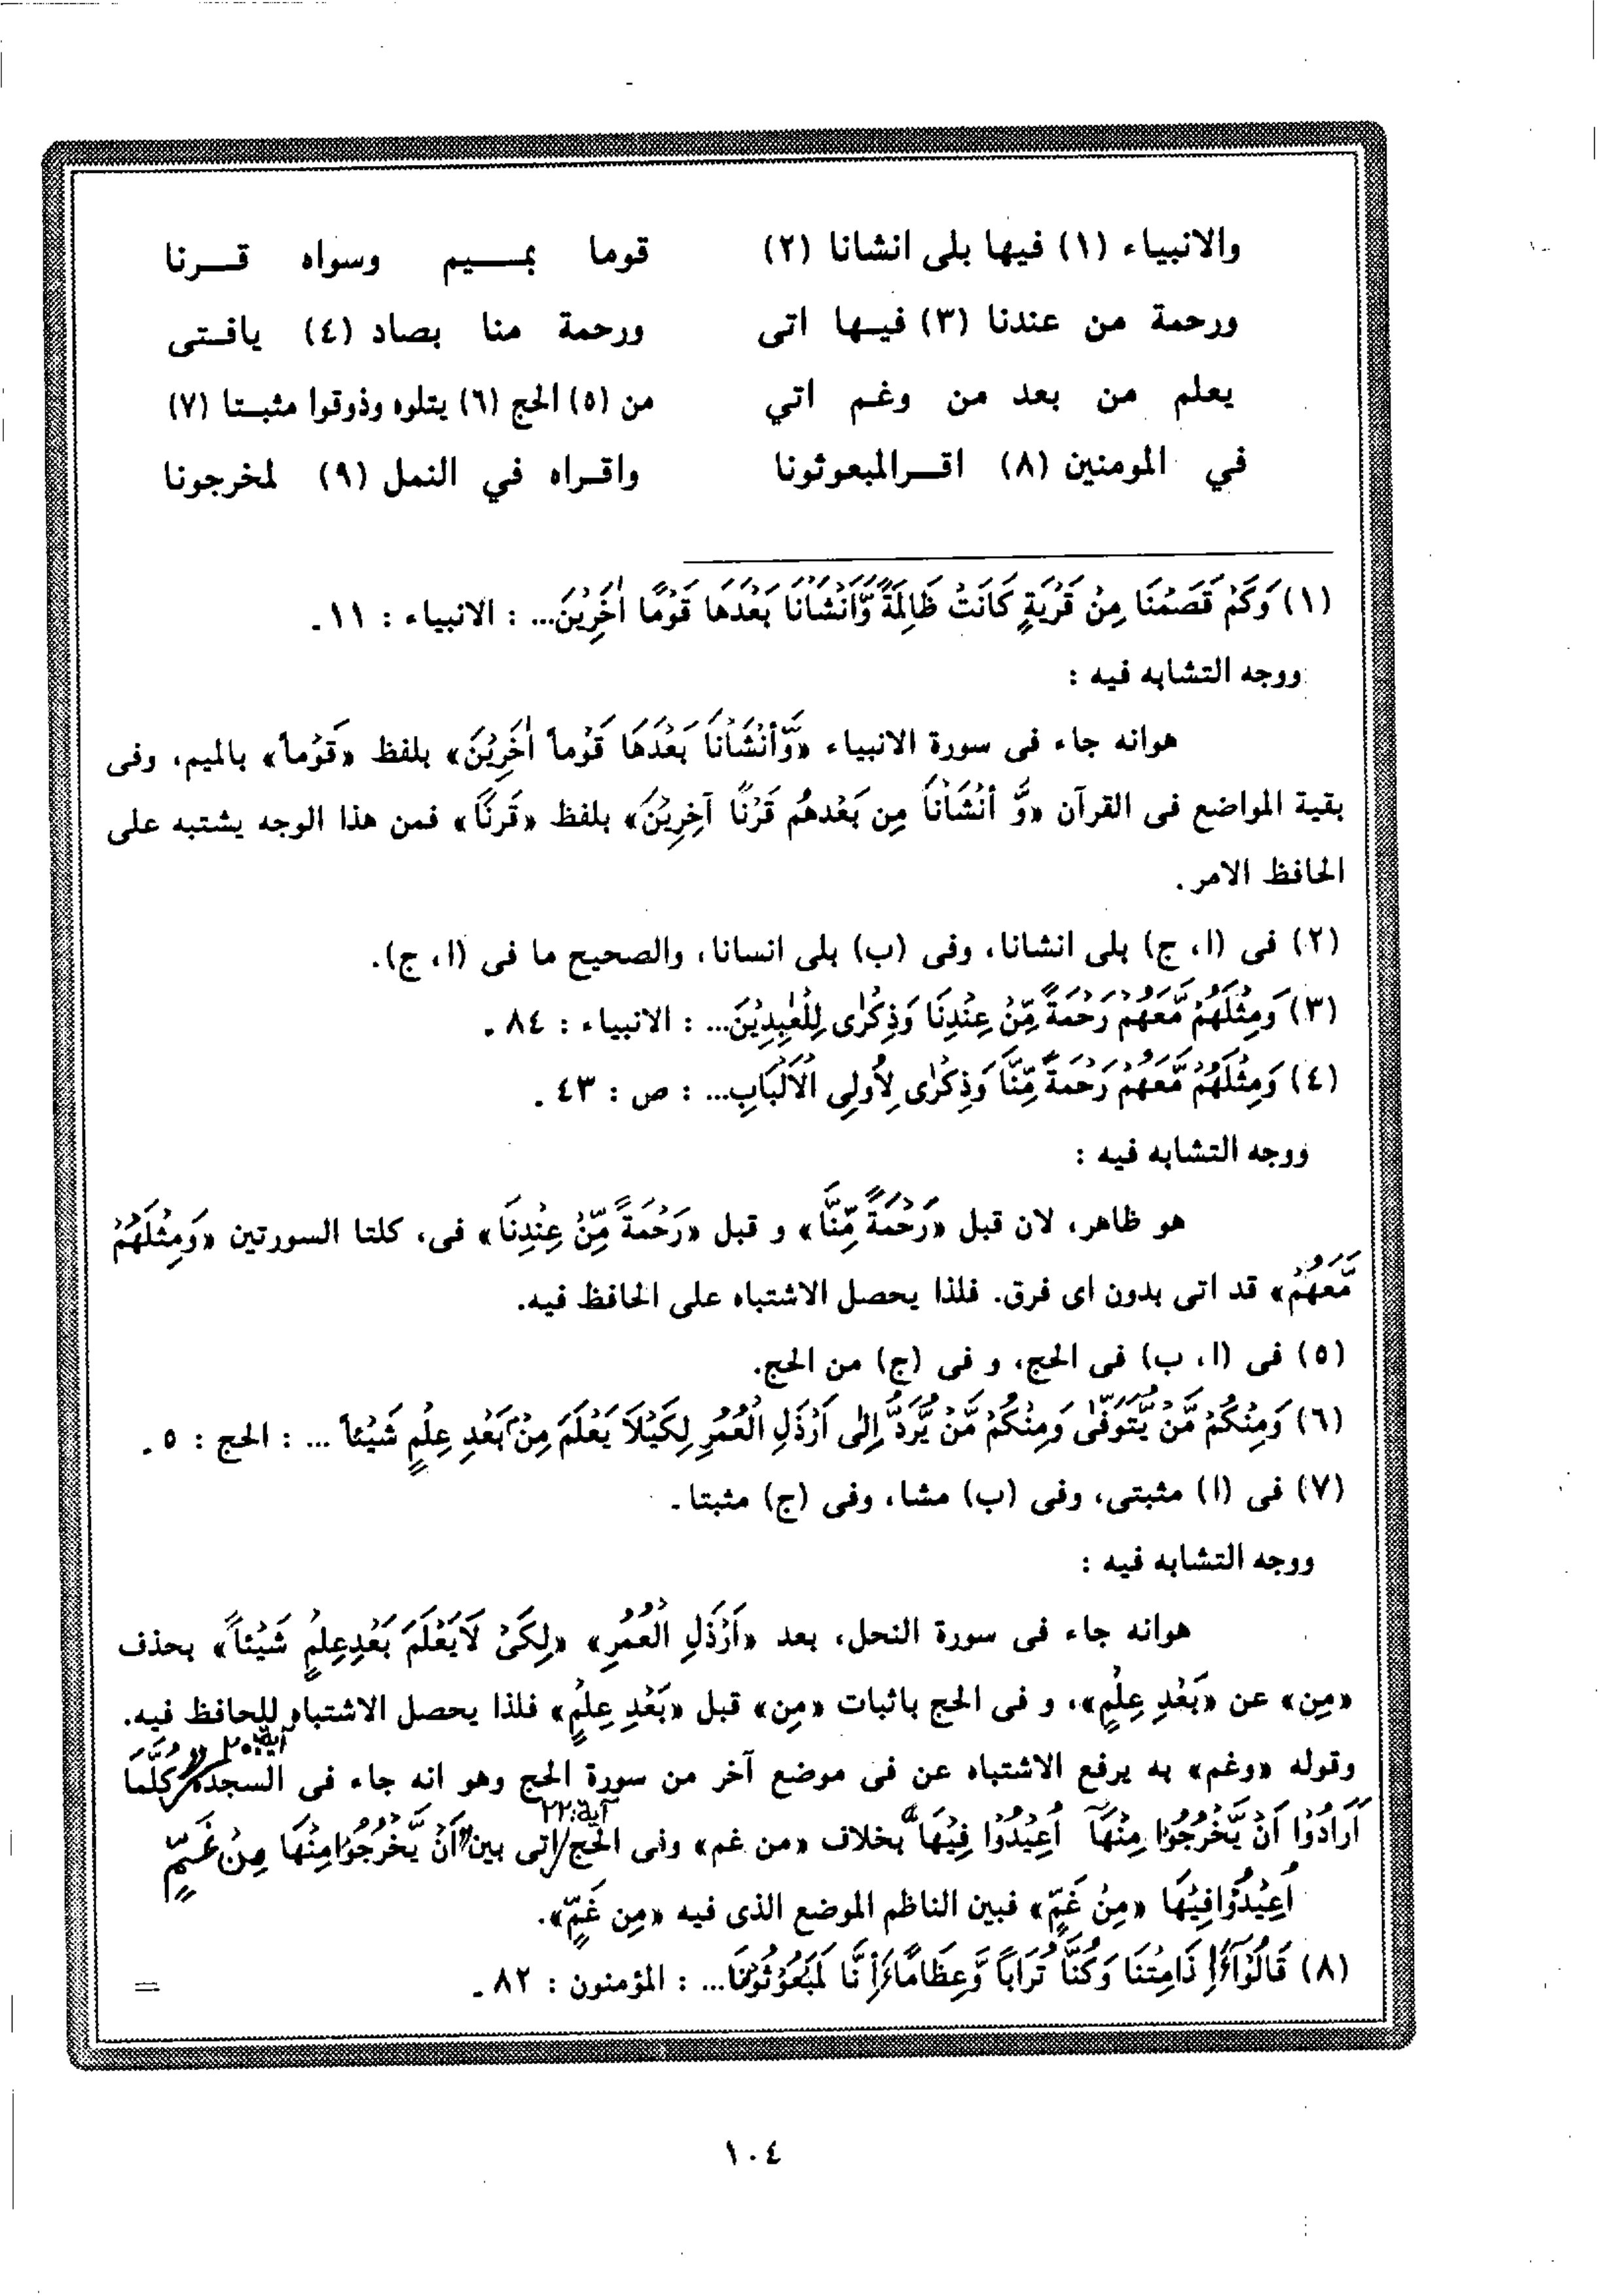 والانبياء (١) فيها بلى انشانا (٢) قوما بمـــيم وسواه قـــرنا
ورحمة من عندنا (٣) فيـها اتى ورحمة منا بصاد (٤) يافـتى
يعلم من بعد من وغـم اتي من (٥) الحج (٦) يتلوه وذوقوا مثبـتا (٧)
في المومنين (٨) اقـــرالمبعوثونا واقـراه في النمل (٩) لمخرجونا
(١) وَكَمْ قَصَمْنَا مِنْ قَرْيَةٍ كَانَتْ ظَالِمَةً وَّاَنْشَاْنَا بَعْدَهَا قَوْمًا اٰخَرِيْنَ... : الانبياء : ١١ـ
ووجه التشابه فيه :
هوانه جاء فى سورة الانبياء «وَّأَنْشَاْنَا بَعْدَهَا قَوْماً اٰخَرِيْنَ» بلفظ «قَوْماً» بالميم، وفى
بقية المواضع فى القرآن «وَّ أنْشَاْنَا مِن بَعْدهُم قَرْنًا آخرِيْنَ» بلفظ «قَرنًا» فمن هذا الوجه يشتبه على
الحافظ الامر.
(٢) فى (ا، ج) بلى انشانا، وفى (ب) بلى انسانا، والصحيح ما فى (ا، ج).
(٣) وَمِثْلَهُمْ مَّعَهُمْ رَحْمَةً مِّنْ عِنْدِنَا وَذِكْرٰى لِلْعٰبِدِيْنَ... : الانبياء : ٨٤ ـ
(٤) وَمِثْلَهُمْ مَّعَهُمْ رَحْمَةً مِّنَّا وَذِكْرٰى لِأُولِى الْاَلْبَابِ... : ص : ٤٣ ـ
ووجه التشابه فيه :
هو ظاهر، لان قبل «رَحْمَةً مِّنَّا» و قبل «رَحْمَةً مِّنْ عِنْدِنَا» فى، كلتا السورتين «وَمِثْلَهُمْ
مَّعَهُمْ» قد اتى بدون اى فرق. فلذا يحصل الاشتباه على الحافظ فيه.
(٥) فى (ا، ب) فى الحج، و فى (ج) من الحج.
(٦) وَمِنْكُمْ مَّنْ يُّتَوَفّٰى وَمِنْكُمْ مَّنْ يُّرَدُّ اِلٰى اَرْذَلِ الْعُمُرِ لِكَيْلَا يَعْلَمَ مِنْ بَعْدِ عِلْمٍ شَيْئاً ... : الحج : ٥ ـ
(٧) فى (ا) مثبتى، وفى (ب) مشا، وفى (ج) مثبتا ـ
ووجه التشابه فيه :
هوانه جاء فى سورة النحل، بعد «اَرْذَلِ الْعُمُرِ» «لِكَىْ لَايَعْلَمَ بَعْدِعِلمٍ شَيْئاً» بحذف
«مِن» عن «بَعْدِ عِلْمٍ»، و فى الحج باثبات «مِن» قبل «بَعْدِ عِلْمٍ» فلذا يحصل الاشتباه للحافظ فيه.
وقوله «وغم» به يرفع الاشتباه عن فى موضع آخر من سورة الحج وهو انه جاء فى السجدة آية:٢٠ «كُلَّمَا
اَرَادُوْا اَنْ يَّخْرُجُوْا مِنْهَآ اُعِيْدُوْا فِيْهَا» بخلاف «من غم» وفى الحَج آية:٢٢ اتى بين "اَنْ يَّخْرُجُوْامِنْهَا مِنْ غَمٍّ
اُعِيْدُوْافِيْهَا «مِنْ غَمٍّ» فبين الناظم الموضع الذى فيه «مِن غَمٍّ».
(٨) قَالُوْآءَاِ ذَامِتْنَا وَكُنَّا تُرَاباً وَّعِظَامًاءَاِ نَّا لَمَبْعُوْثُوْنَ... : المؤمنون : ٨٢ ـ =
١٠٤